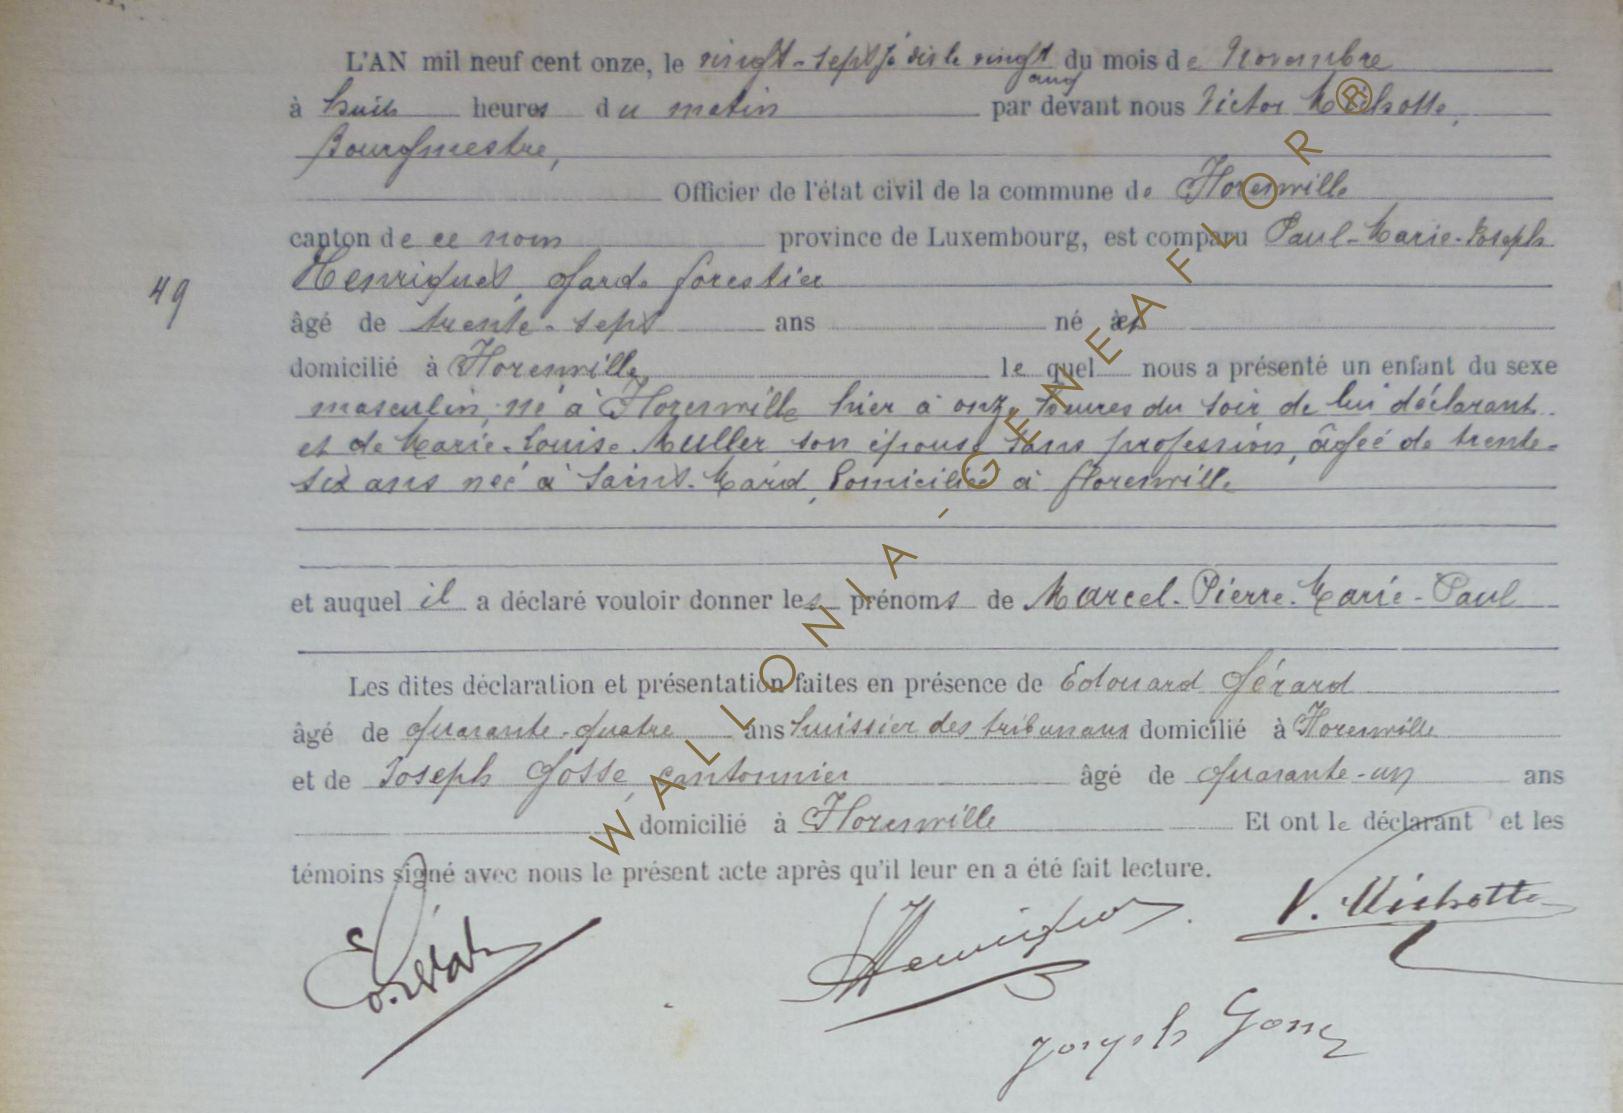 L'AN mil neuf cent onze, le vingt-sept je dis le vingt du mois de Novembre
cinq
à huit heures du matin par devant nous Victor Michotte,
Bourgmestre,
Officier de l'état civil de la commune de Florenville
canton de ce nom province de Luxembourg, est comparu Paul-Marie-Joseph
49
Henriquet, garde forestier
âgé de trente-sept ans né à et
domicilié à Florenville lequel nous a présenté un enfant du sexe
masculin, né à Florenville hier à onze heures du soir de lui déclarant
et de Marie-Louise Muller son épouse sans profession, âgée de trente-
six ans née à Saint-Mard, domiciliée à Florenville
et auquel il a déclaré vouloir donner les prénoms de Marcel-Pierre-Marie-Paul
Les dites déclaration et présentation faites en présence de Edouard Gérard
âgé de quarante-quatre ans huissier des tribunaux domicilié à Florenville
et de Joseph Gosse, cantonnier âgé de quarante-un ans
domicilié à Florenville Et ont le déclarant et les
témoins signé avec nous le présent acte après qu'il leur en a été fait lecture.
V. Michotte
Henriquet
Joseph Gosse
WALLONIA - GENEAFLOR ®